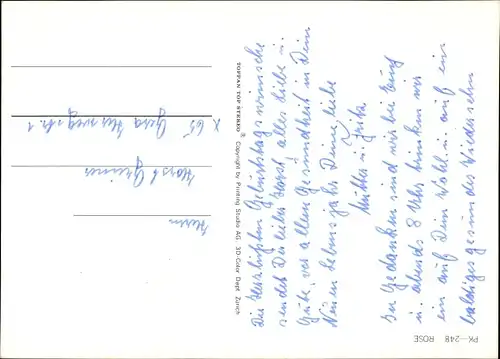 Die herzlichsten Geburtstagswünsche
sendet Dir lieber Horst alles Liebe u.
Gute, vor allem Gesundheit in Dein
Neuen Lebensjahr Deine liebe
Mutter u. Fritz
In Gedanken sind wir bei Euch
u. abends 8 Uhr trinken wir
ein auf Dein Wohl u. auf ein
baldiges gesundes Wiedersehn
TOPPAN TOP STEREO ® Copyright by Printing Studio AG 3D-Color Dept. Zürich
Herrn
Horst
X 65 Gera
PK-248 ROSE